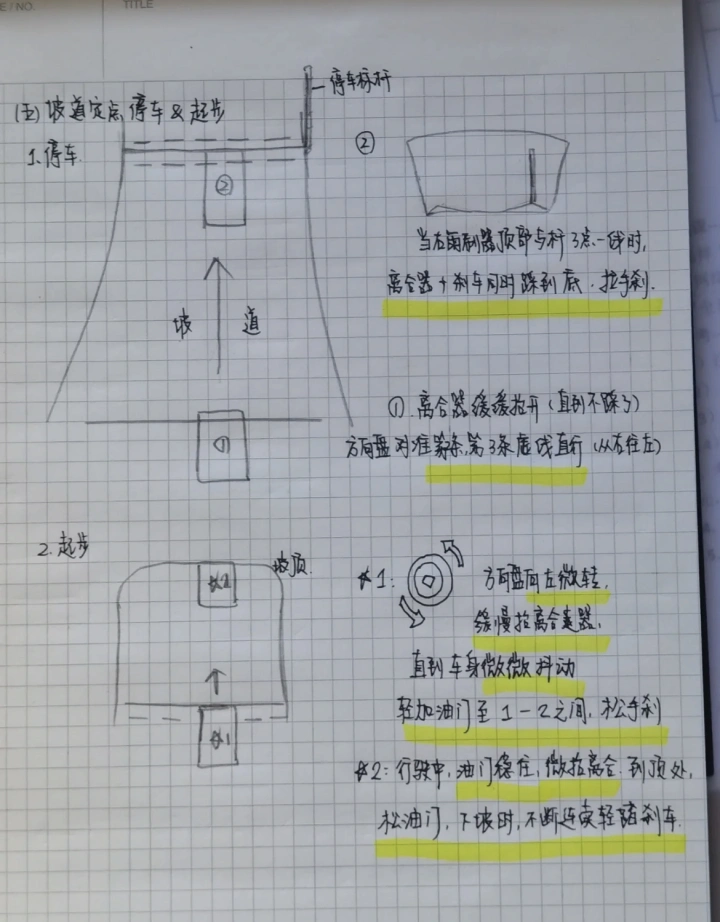 E / NO.
TITLE
(五) 坡道定点停车 & 起步
停车标杆
1. 停车.
②
②
坡 道
当右雨刷器顶部与杆3点一线时,
离合器+刹车同时踩到底. 拉手刹.
①
①. 离合器缓缓抬开 (直到不踩了)
方向盘对准 第3条虚线直行 (从右往左)
2. 起步
坡顶.
☆2
☆1
☆1:
方向盘向左微转,
缓慢抬离合器,
直到车身微微抖动
轻加油门至1-2之间, 松手刹
☆2: 行驶中, 油门稳住, 微抬离合. 到顶处,
松油门, 下坡时, 不断连续轻踏刹车.